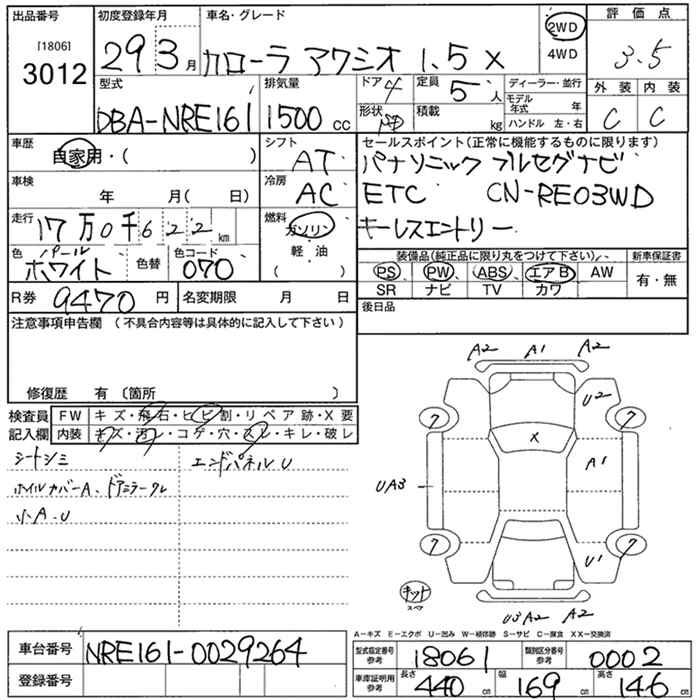 出品番号 初度登録年月 車名・グレード 評価点
[1806] 3012 29 3月 カローラ アクシオ 1.5 X 2WD 4WD 3.5
型式 排気量 ドア 4 定員 5人 ディーラー・並行 外装 内装
DBA-NRE161 1500cc 形状 積載 kg モデル年式 年 ハンドル 左・右 C C
車歴 自家用・( ) シフト AT セールスポイント(正常に機能するものに限ります)
パナソニック フルセグナビ
車検 年 月( 日) 冷房 AC ETC CN-RE03WD
走行 17万0千622km 燃料 ガソリン 軽油 ( ) キーレスエントリー
色 パールホワイト 色替 色コード 070 装備品(純正品に限り丸をつけて下さい) 新車保証書
PS PW ABS エアB AW 有・無
R券 9470円 名変期限 月 日 SR ナビ TV カワ
注意事項申告欄 (不具合内容等は具体的に記入して下さい) 後日品
修復歴 有 (箇所 )
検査員記入欄 FW キズ・飛石・ヒビ割・リペア跡・X要
内装 キズ・汚レ・コゲ・穴・スレ・キレ・破レ
シートシミ エンドパネルU
ホイルカバーA、ドアミラークレ
小A.U
A2 A1 A2
U2
7 7
X
A1
UA3
7 7
U1
キット スペア
A2 A2
A-キズ E-エクボ U-凹み W-補修跡 S-サビ C-腐食 XX-交換済
車台番号 NRE161-0029264 型式指定番号 参考 18061 類別区分番号 参考 0002
登録番号 車庫証明用 参考 長さ 440cm 幅 169cm 高さ 146cm